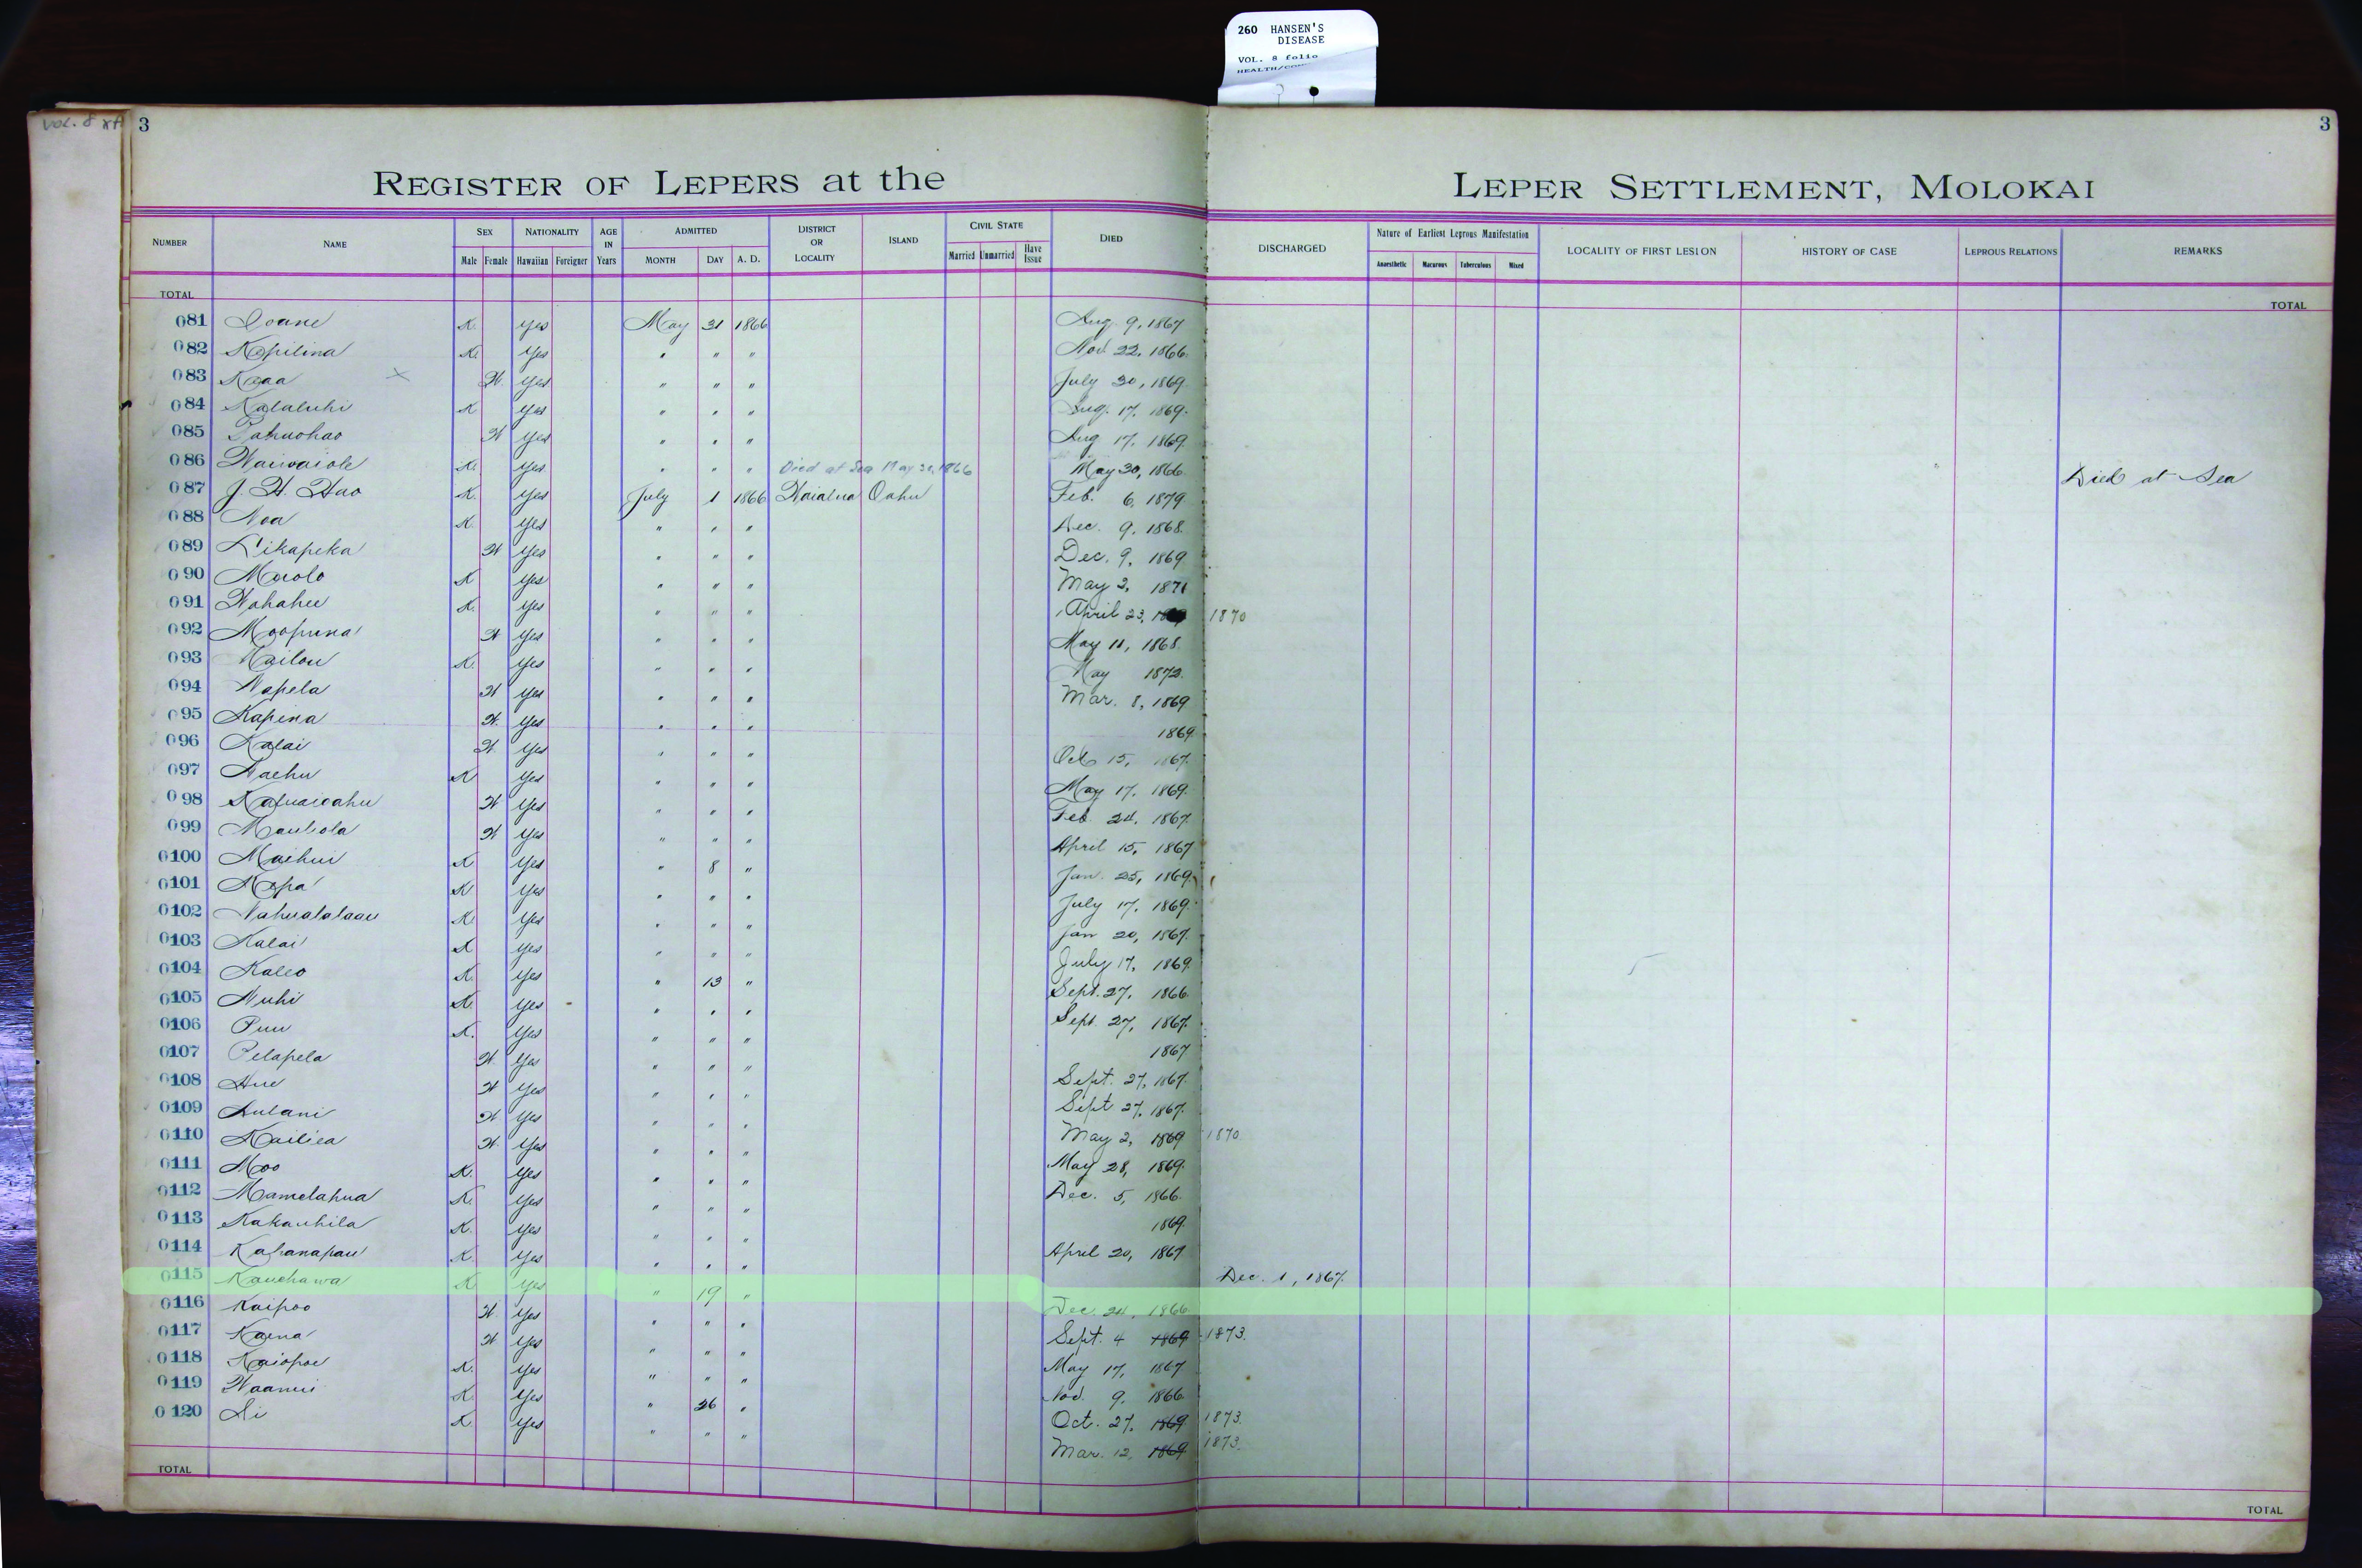 260 HANSEN'S
DISEASE
VOL. 8 folio
VOL. 8
3
3
REGISTER OF LEPERS at the LEPER SETTLEMENT, MOLOKAI
NUMBER NAME SEX NATIONALITY AGE IN Years ADMITTED DISTRICT OR LOCALITY ISLAND CIVIL STATE DIED DISCHARGED Nature of Earliest Leprous Manifestation LOCALITY OF FIRST LESION HISTORY OF CASE LEPROUS RELATIONS REMARKS
Male Female Hawaiian Foreigner MONTH DAY A. D. Married Unmarried Have Issue Anaesthetic Macurous Tuberculous Mixed
TOTAL TOTAL
081 Ioane K. Yes May 31 1866 Aug. 9, 1867
082 Kapilina K. Yes " " " Nov. 22, 1866.
083 Kaaa x W. Yes " " " July 30, 1869.
084 Kalaluhi K Yes " " " Aug. 17, 1869.
085 Pahuohao W Yes " " " Aug 17, 1869.
086 Waiwaiole K. Yes " " " Died at Sea May 30, 1866 May 30, 1866. Died at Sea
087 J. H. Hao K. Yes July 1 1866 Waialua Oahu Feb. 6, 1879
088 Noa K. Yes " " " Dec. 9, 1868.
089 Likapeka W Yes " " " Dec. 9, 1869
090 Maolo K Yes " " " May 2, 1871
091 Wahahee K. Yes " " " April 23, 1870
092 Moopuna W Yes " " " May 11, 1868.
093 Kailou K. Yes " " " May 1872.
094 Napela W Yes " " " Mar. 8, 1869
095 Kapina W. Yes " " " 1869.
096 Kalai W. Yes " " " Oct 15, 1867.
097 Naehu K Yes " " " May 17, 1869.
098 Kapuaioahu W Yes " " " Feb. 24, 1867.
099 Mauliola W Yes " " " April 15, 1867
0100 Maihui K Yes " 8 " Jan. 25, 1869.
0101 Napa K Yes " " " July 17, 1869.
0102 Nahualalaau K. Yes " " " Jan 20, 1867.
0103 Kalai K Yes " " " July 17, 1869.
0104 Kaleo K. Yes " 13 " Sept. 27, 1866.
0105 Nuhi K. Yes " " " Sept. 27, 1867.
0106 Puu K. Yes " " " 1867
0107 Pelapela W. Yes " " " Sept. 27, 1867.
0108 Hue W Yes " " " Sept 27, 1867.
0109 Aulani W. Yes " " " May 2, 1869 1870.
0110 Kailiea W. Yes " " " May 28, 1869.
0111 Moo K. Yes " " " Dec. 5, 1866.
0112 Mamelahua K. Yes " " " 1869.
0113 Kakauhila K. Yes " " " April 20, 1867
0114 Kahanapau K. Yes " " " Dec. 1, 1867.
0115 Kauehawa K. Yes " 19 " Dec. 24, 1866
0116 Kaipoo W. Yes " " " Sept. 4 1869 1873.
0117 Kaena W Yes " " " May 17, 1867
0118 Kaiopoe K. Yes " " " Nov. 9, 1866.
0119 Waanui K. Yes " 26 " Oct. 27, 1869 1873.
0120 Li K. Yes " " " Mar. 12, 1869 1873.
TOTAL TOTAL